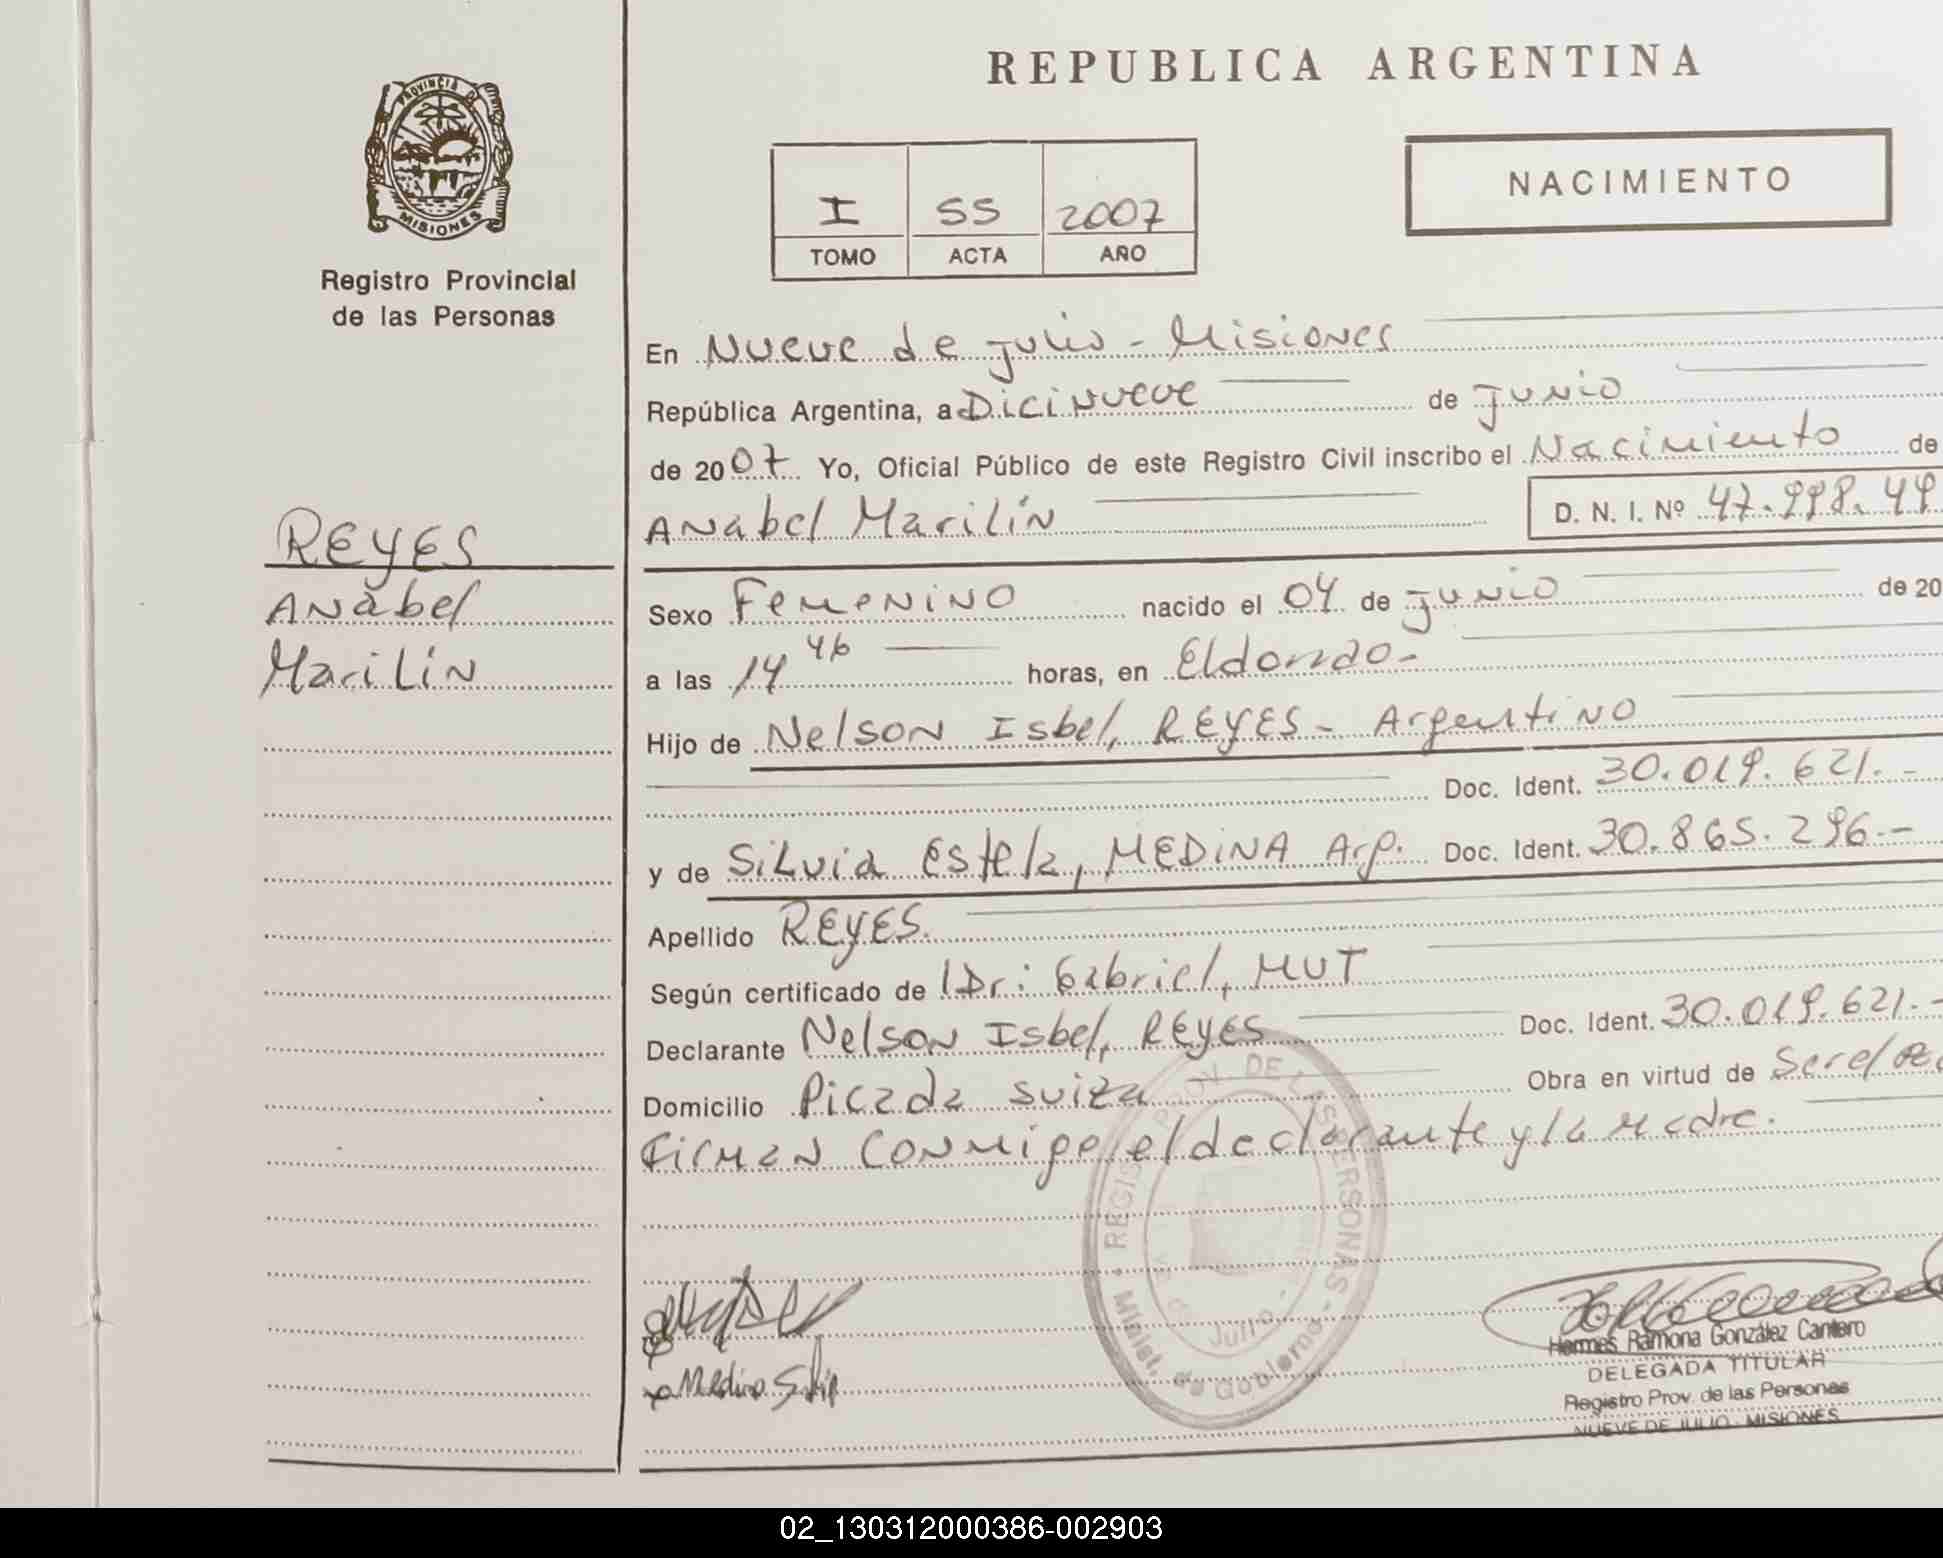 PROVINCIA DE
MISIONES
Registro Provincial
de las Personas
REPUBLICA ARGENTINA
NACIMIENTO
I 55 2007
TOMO ACTA AÑO
En Nueve de julio - Misiones
República Argentina, a Dicinueve de junio
de 2007 Yo, Oficial Público de este Registro Civil inscribo el Nacimiento de
Anabel Marilín D. N. I. Nº 47.998.49
REYES
Anabel
Marilín
Sexo Femenino nacido el 04 de junio de 20
a las 14 46 horas, en Eldorado-
Hijo de Nelson Isbel, REYES - Argentino
Doc. Ident. 30.019.621.-
y de Silvia Estela, MEDINA Arg. Doc. Ident. 30.865.296.-
Apellido REYES.
Según certificado de Dr: Gabriel, MUT
Declarante Nelson Isbel, REYES Doc. Ident. 30.019.621.-
Domicilio Picada suiza Obra en virtud de
Firman conmigo el declarante y la madre.
REGIS PROV DE LAS PERSONAS - Minist. de Gobierno -
de Julio -
Medina Silvia
Hermes Ramona González Cantero
DELEGADA TITULAR
Registro Prov. de las Personas
NUEVE DE JULIO - MISIONES
02_130312000386-002903